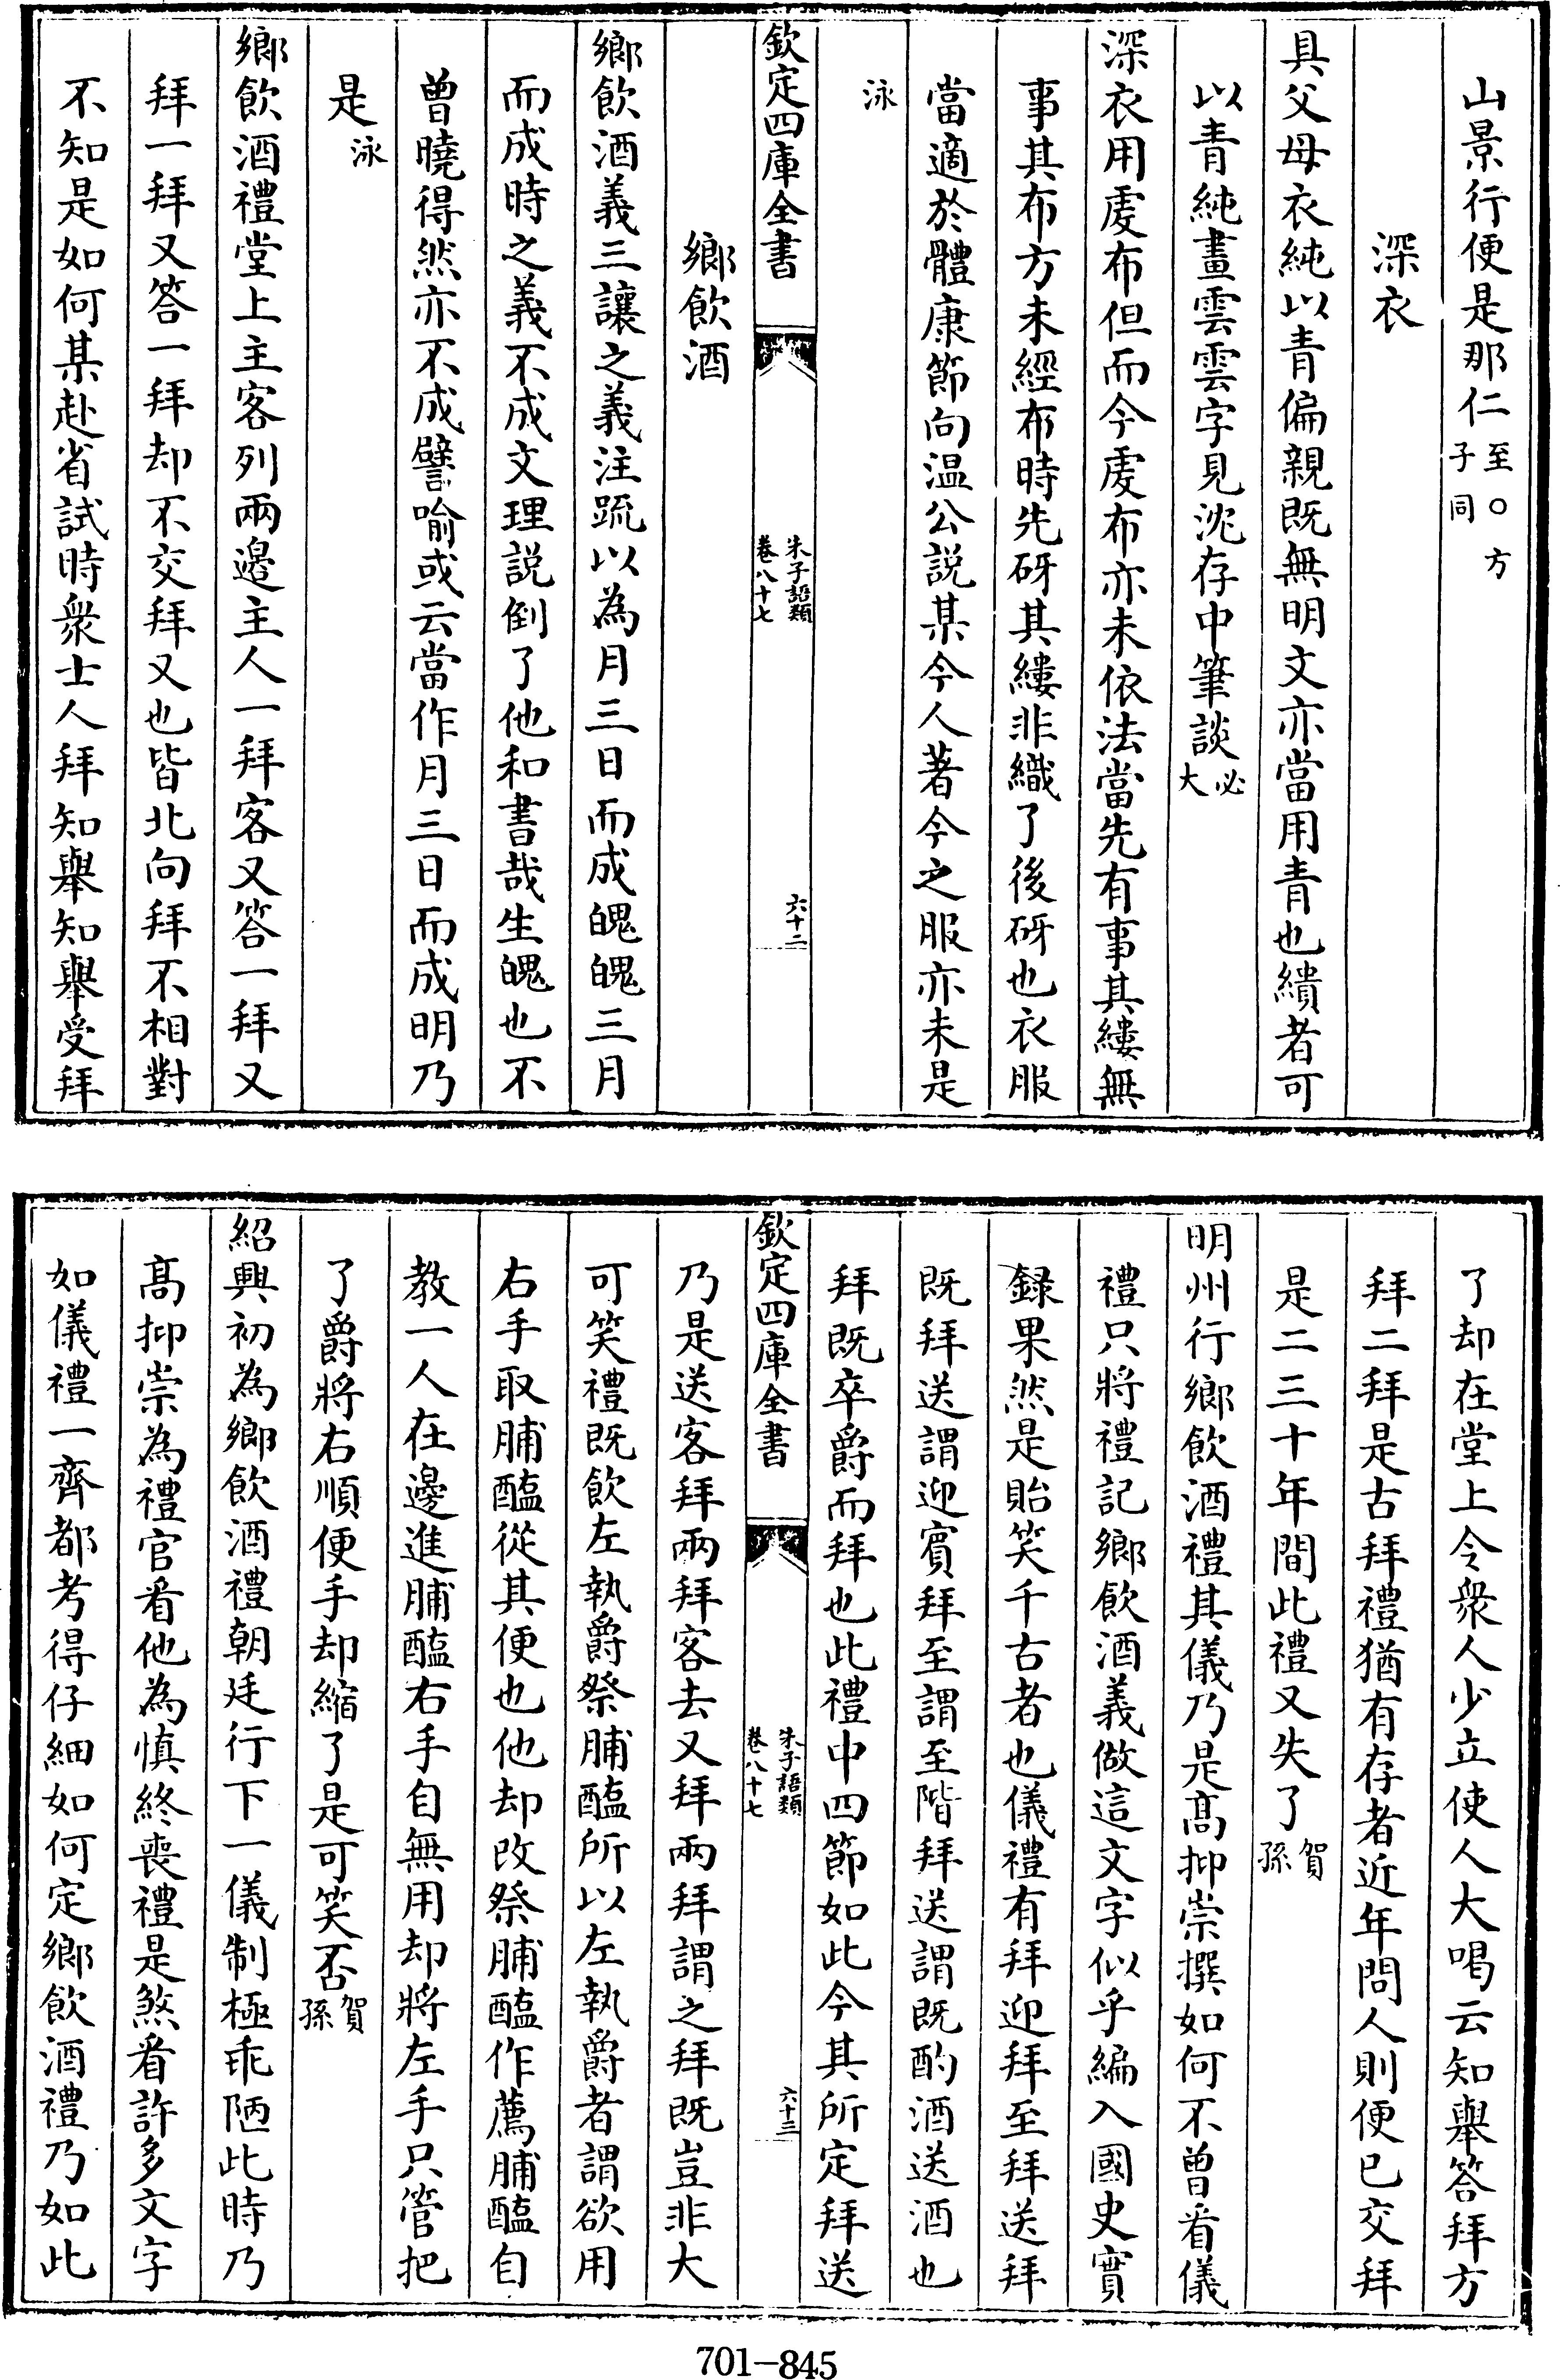 山景行便是那仁至〇方子同
深衣
具父母衣純以青偏親既無明文亦當用青也繢者可
以青純畫雲雲字見沈存中筆談必大
深衣用䖏布但而今䖏布亦未依法當先有事其縷無
事其布方未經布時先砑其縷非織了後砑也衣服
當適於體康節向温公説某今人著今之服亦未是
泳
欽定四庫全書
朱子語類
卷八十七
六十二
鄉飲酒
鄉飲酒義三讓之義注䟽以為月三日而成魄魄三月
而成時之義不成文理説倒了他和書哉生魄也不
曾曉得然亦不成譬喻或云當作月三日而成明乃
是泳
鄉飲酒禮堂上主客列兩邊主人一拜客又答一拜又
拜一拜又答一拜却不交拜又也皆北向拜不相對
不知是如何某赴省試時衆士人拜知舉知舉受拜
了却在堂上令衆人少立使人大喝云知舉答拜方
拜二拜是古拜禮猶有存者近年問人則便已交拜
是二三十年間此禮又失了賀孫
明州行鄉飲酒禮其儀乃是髙抑崇撰如何不曾㸔儀
禮只將禮記鄉飲酒義做這文字似乎編入國史實
録果然是貽笑千古者也儀禮有拜迎拜至拜送拜
既拜送謂迎賓拜至謂至階拜送謂既酌酒送酒也
拜既卒爵而拜也此禮中四節如此今其所定拜送
欽定四庫全書
朱子語類
卷八十七
六十三
乃是送客拜兩拜客去又拜兩拜謂之拜既豈非大
可笑禮既飲左執爵祭脯醢所以左執爵者謂欲用
右手取脯醢從其便也他却改祭脯醢作薦脯醢自
教一人在邊進脯醢右手自無用却將左手只管把
了爵將右順便手却縮了是可笑否賀孫
紹興初為鄉飲酒禮朝廷行下一儀制極乖陋此時乃
髙抑崇為禮官㸔他為慎終喪禮是煞㸔許多文字
如儀禮一齊都考得仔細如何定鄉飲酒禮乃如此
701-845